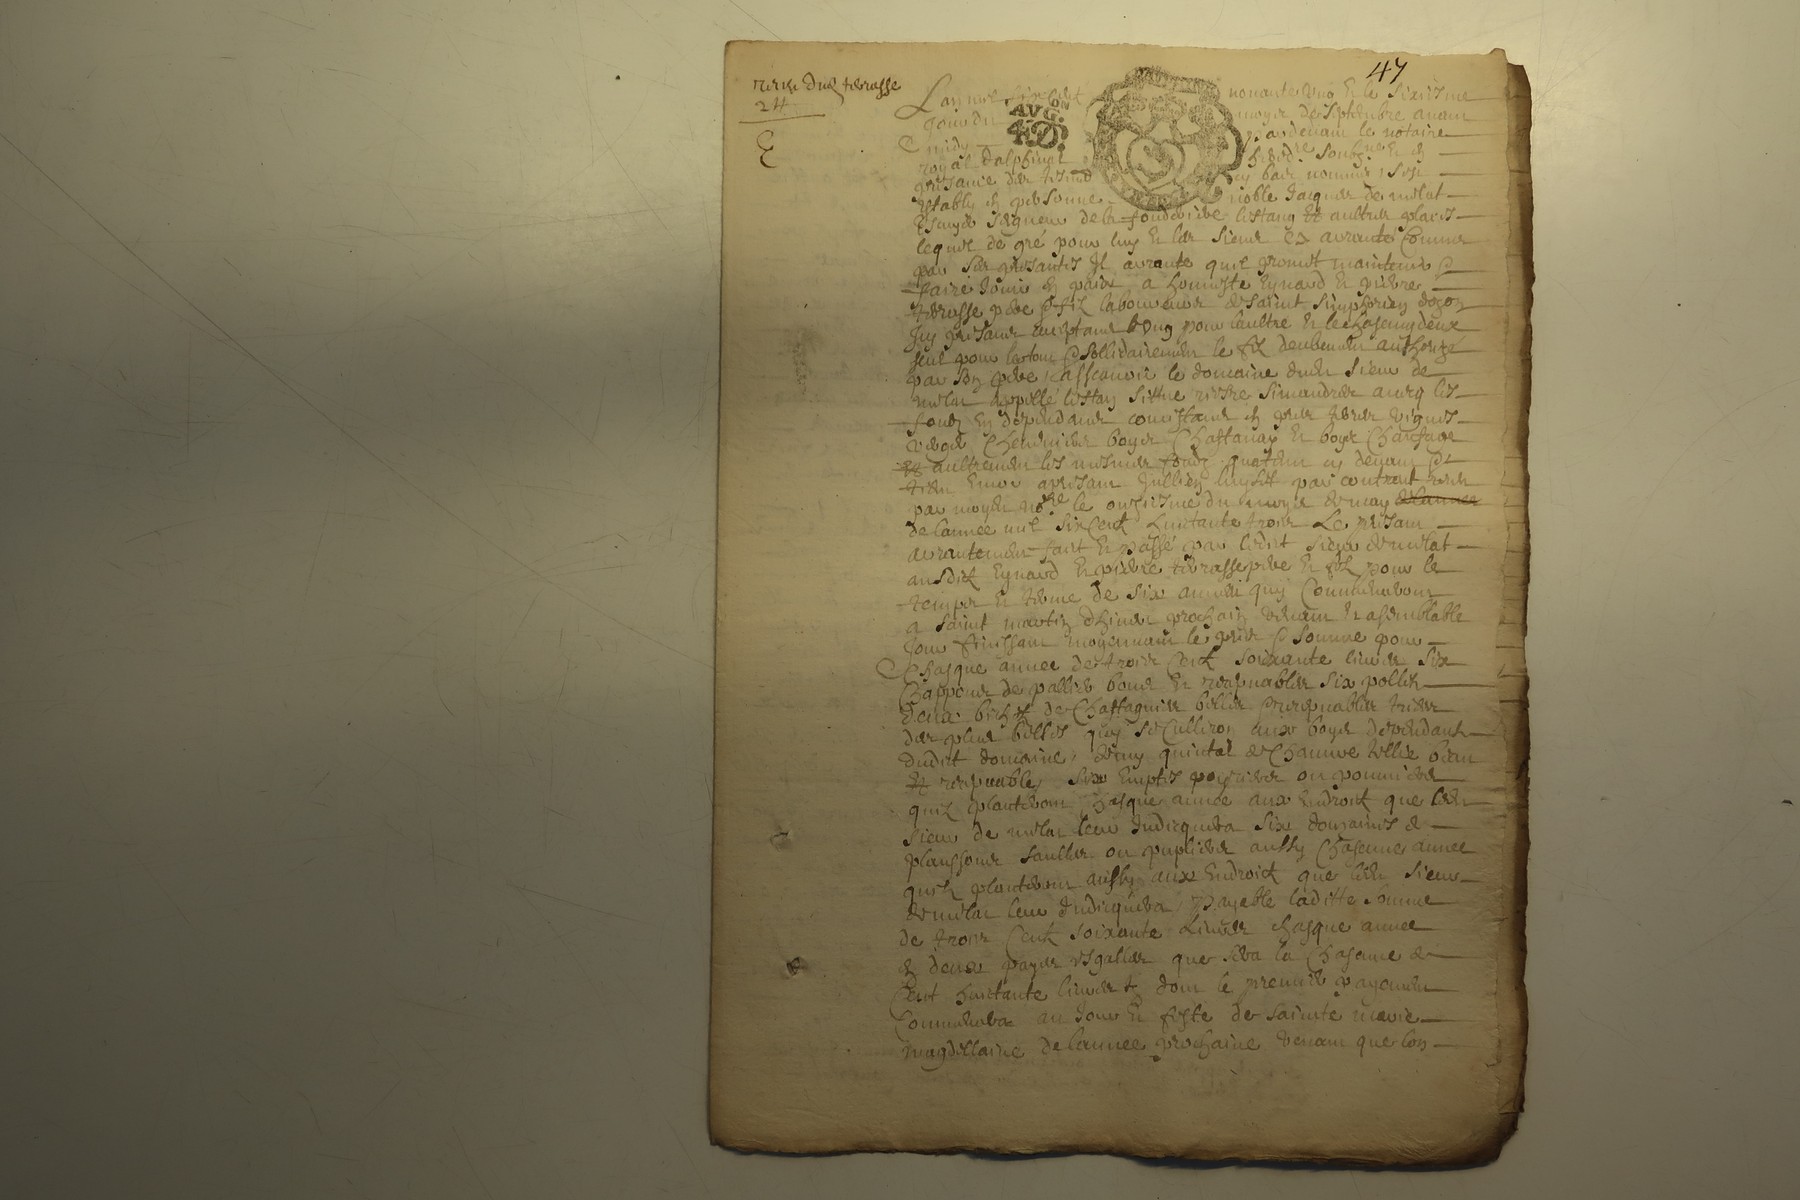 47
24
AVG.ON
4 D.
L'an mil six cent nonante ung et le sixiesme
jour du moys de septembre avant
midy pardevant le notaire
royal dalphinal soubzne et en
presance des tesmoings bas nommes s'est
estably en personne noble Jacques de milat
Escuyer seigneur de la fonderie lestang et aultres places
lequel de gré pour luy et les siens a arranté comme
par ses presantes Il arrante quil promet maintenir &
faire jouir en paix a honneste Eynard et pierre
terrasse pere & filz laboureurs de saint simphorien dozon
Icy presants acceptants l'ung pour l'aultre et le chascung deux
seul pour le tout & sollidairement le filz deubement authorizé
par son pere, assçavoir le domaine dudit sieur de
milat appellé lestan sittué riere simandres avecq les
fonds en dependants consistants en prés terres vignes
verger cheneviere boys chastanay et boys
et aultrement les mesmes fonds que tenu cy devant &
tient encor apresant Jullien par contract receu
par moydit nore le onziesme du moys de may de l'annee
de l'annee mil six cent huictante trois Le presant
arrantement fait et passé par ledict sieur de milat
ausdits Eynard et pierre terrasse pere et filz pour le
temps et terme de six années quy commenceront
a saint martin d'hiver prochain venant et a semblable
jour finissant moyennant le prix & somme pour
chasque annee de trois cents soixante livres six
chappons de pallier bons et recepvables six pollets
deux bichets de chastagnes belles & recepvables tirées
des plus belles quy se culliron aux boys dependants
dudict domaine, demy quintal de chanvre belle bon
et recepvable, six emptes poyriers ou pommiers
quilz planteront chasque annee aux endroits que ledit
sieur de milat leur indicquera six dousaines de
planssons saulles ou pupliers aussy chascune annee
quilz planteront aussy aux endroits que ledit sieur
de milat leur indicquera, payable laditte somme
de trois cents soixante livres chasque annee
en deux payes esgalles que sera la chascune de
cent huictante livres dont le premier payement
commencera au jour et feste de sainte marie
magdellaine de l'annee prochaine venant que lon